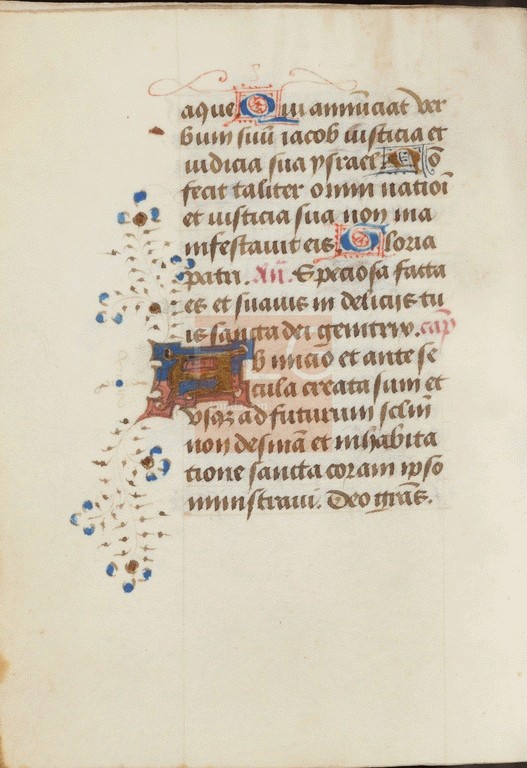 aque Qui annũciat ver
bum suũ iacob iusticia et
iudicia sua ysrael Nõ
fecit taliter omni natioĩ
et iusticia sua non ma
nifestauit eis Gloria
patri. Añ. Speciosa facta
es et suauis in deliciis tu
is sancta dei genitrix. cap̃
Ab inicio et ante se
cula creata sum et
vsqʒ ad futurum sclm̃
non desinã et in habita
tione sancta coram ipso
ministraui. Deo grãs.